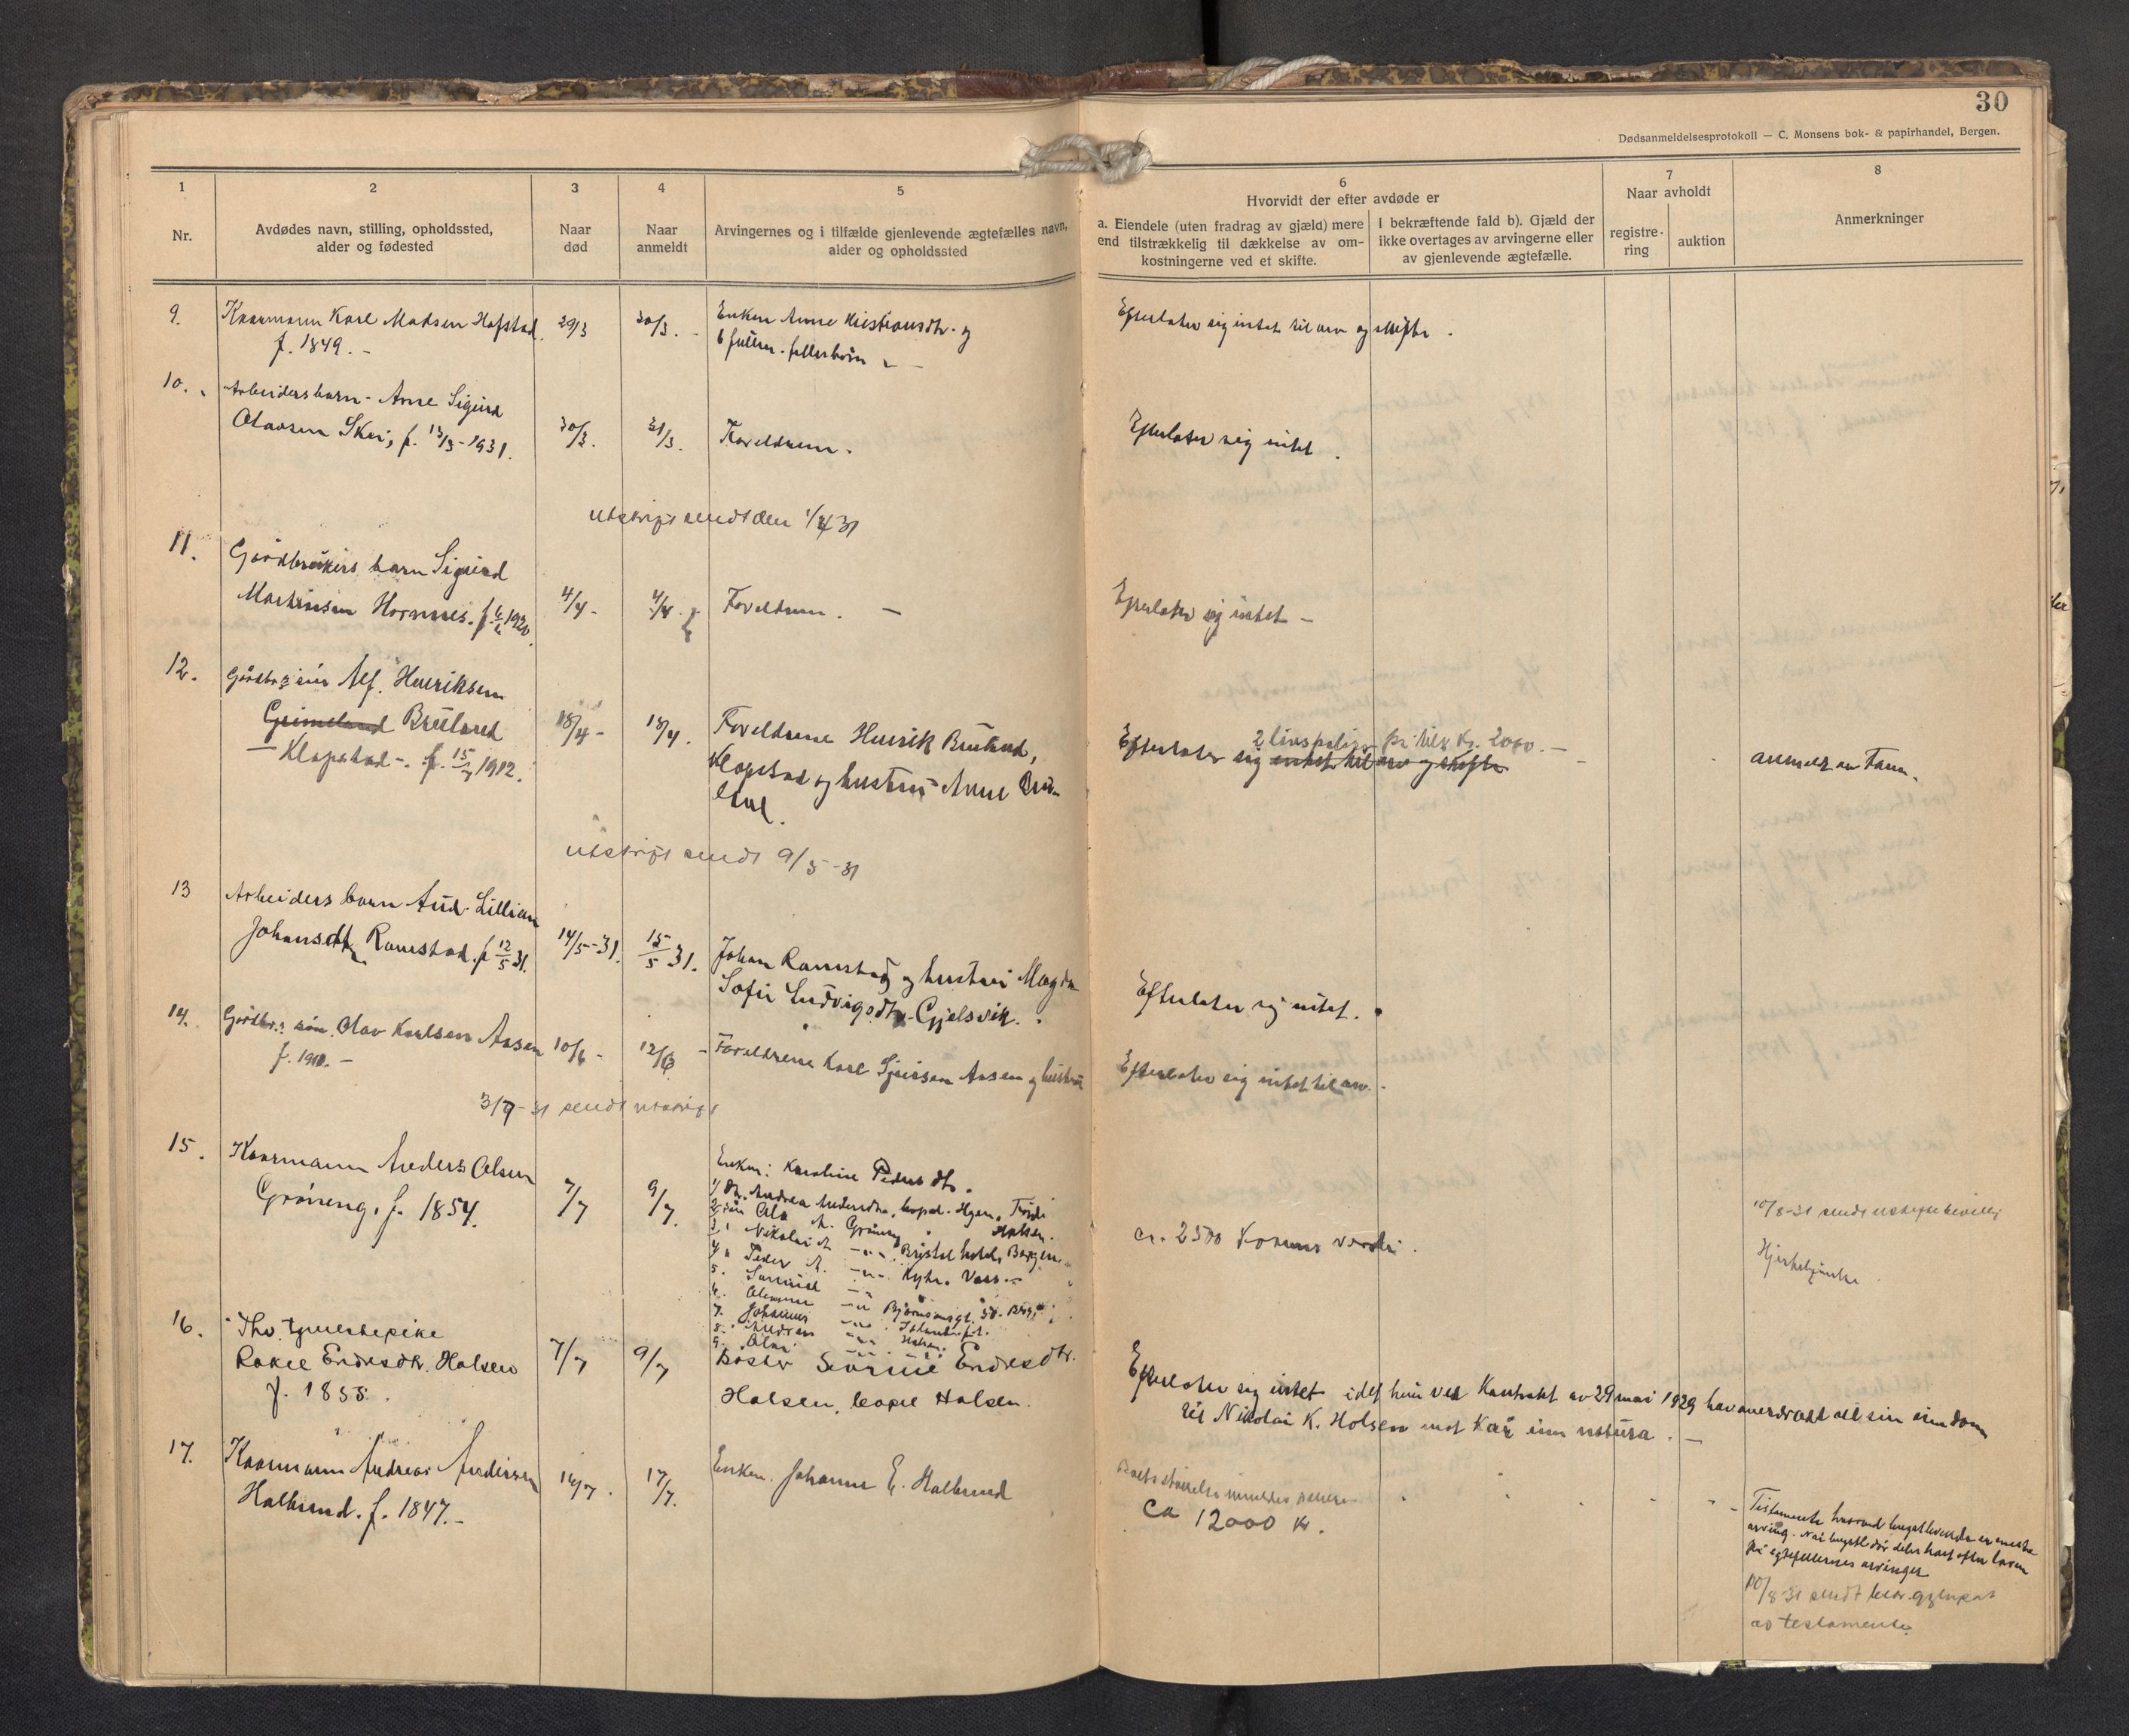 30
Dødsanmeldelsesprotokoll — C. Monsens bok- & papirhandel, Bergen.
1
Nr.
2
Avdødes navn, stilling, opholdssted,
alder og fødested
3
Naar
død
4
Naar
anmeldt
5
Arvingernes og i tilfælde gjenlevende ægtefælles navn,
alder og opholdssted
6
Hvorvidt der efter avdøde er
a. Eiendele (uten fradrag av gjæld) mere
end tilstrækkelig til dækkelse av om-
kostningerne ved et skifte.
I bekræftende fald b). Gjæld der
ikke overtages av arvingerne eller
av gjenlevende ægtefælle.
7
Naar avholdt
registre-
ring
auktion
8
Anmerkninger
9.
Kaarmann Karl Madsen Hafstad
f. 1849. -
29/3
30/3. -
Enken Anne Kristiansdtr. og
6 fuldm. fellesbörn
Efterlater sig intet til arv og skifte.
10.
Arbeidersbarn - Arne Sigurd
Olavsen Skei, f. 13/3-1931.
30/3.
31/3.
Foreldrene.
Efterlater sig intet.
utskrift sendt den 1/4 31
11.
Gårdbrukers barn Sigurd
Martinsen Hornnes. f.
4/4 -
4/4.
Foreldrene. -
Efterlater sig intet -
12.
Gårdbr. sön Alf. Henriksen
Grimeland Bruland
- Klopstad -. f. 15/7 1912.
18/4 -
18/4.
Foreldrene Henrik Bruland,
Klopstad og hustru Anne Bru-
land.
2 livspoliser på tils. Kr. 2000. -
Efterlater sig intet til arv og skifte
anmeldt av Faren.
utskrift sendt 9/5-31
13
Arbeiders barn Aud Lillian
Johansdtr Ramstad. f 12/5 31.
14/5-31.
15/5 31.
Johan Ramstad og hustru Magda
Sofie Ludvigsdtr. Gjelsvik.
Efterlater sig intet.
14.
Gårdbr.s sön Olav Karlsen Aasen
f. 1910. -
10/6 -
12/6 -
Foreldrene Karl Aasen og hustru
Efterlater sig intet til arv.
3/7-31 sendt utskrift
15.
Kaarmann Anders Olsen
Gröneng, f. 1854.
7/7
9/7.
Enken: Karoline Pedersdtr.
1/ Dtr. Andrea Andersdtr, bopel. Hgen, Förde
2 sön Ola A. Gröneng Holsen.
3 " Nikolai A -"- Bristol hotel, Bergen
4 " Peder A. -"- Voss
5. Samuel -"-
6. -"- Björnsonsgt. 50. Berg.
7. Johannes -"-
8. Andreas -"- Holsen.
9. Olai -"- -"-
ca. 2500 Kroners verdi.
10/8-31 sendt
16.
Fhv. tjenestepike
Rakel Endresdtr. Holsen
f. 1855.
7/7
9/7
Söster Severine Endresdtr.
Holsen, bopel Holsen.
Efterlater sig intet idet hun ved Kontrakt av 29 mai 1929 hav overdradt all sin eiendom
til Nikolai K. Holsen mot Kår inn natura. -
17.
Kaarmann Andreas Andersen
Halbrend. f. 1847. -
14/7.
17/7.
Enken. Johanne E. Halbrend
Boets störrelse innmeldes senere.
Ca 12000 Kr.
- Testamente hvorved lengstlevende er eneste
arving. Når lengstl. dör deles boet efter loven
på egtefellernes arvinger
10/8-31 sendt bekr. gjenpart
av testamente.